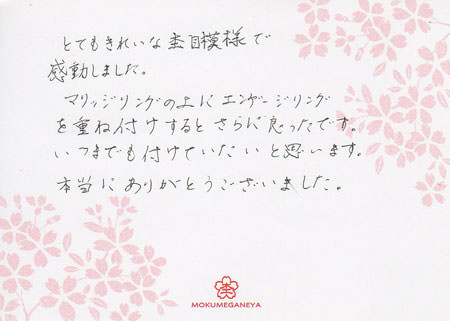 とてもきれいな杢目模様で
感動しました。
マリッジリングの上にエンゲージリング
を重ね付けするとさらに良ったです。
いつまでも付けていたいと思います。
本当にありがとうございました。
杢
MOKUMEGANEYA